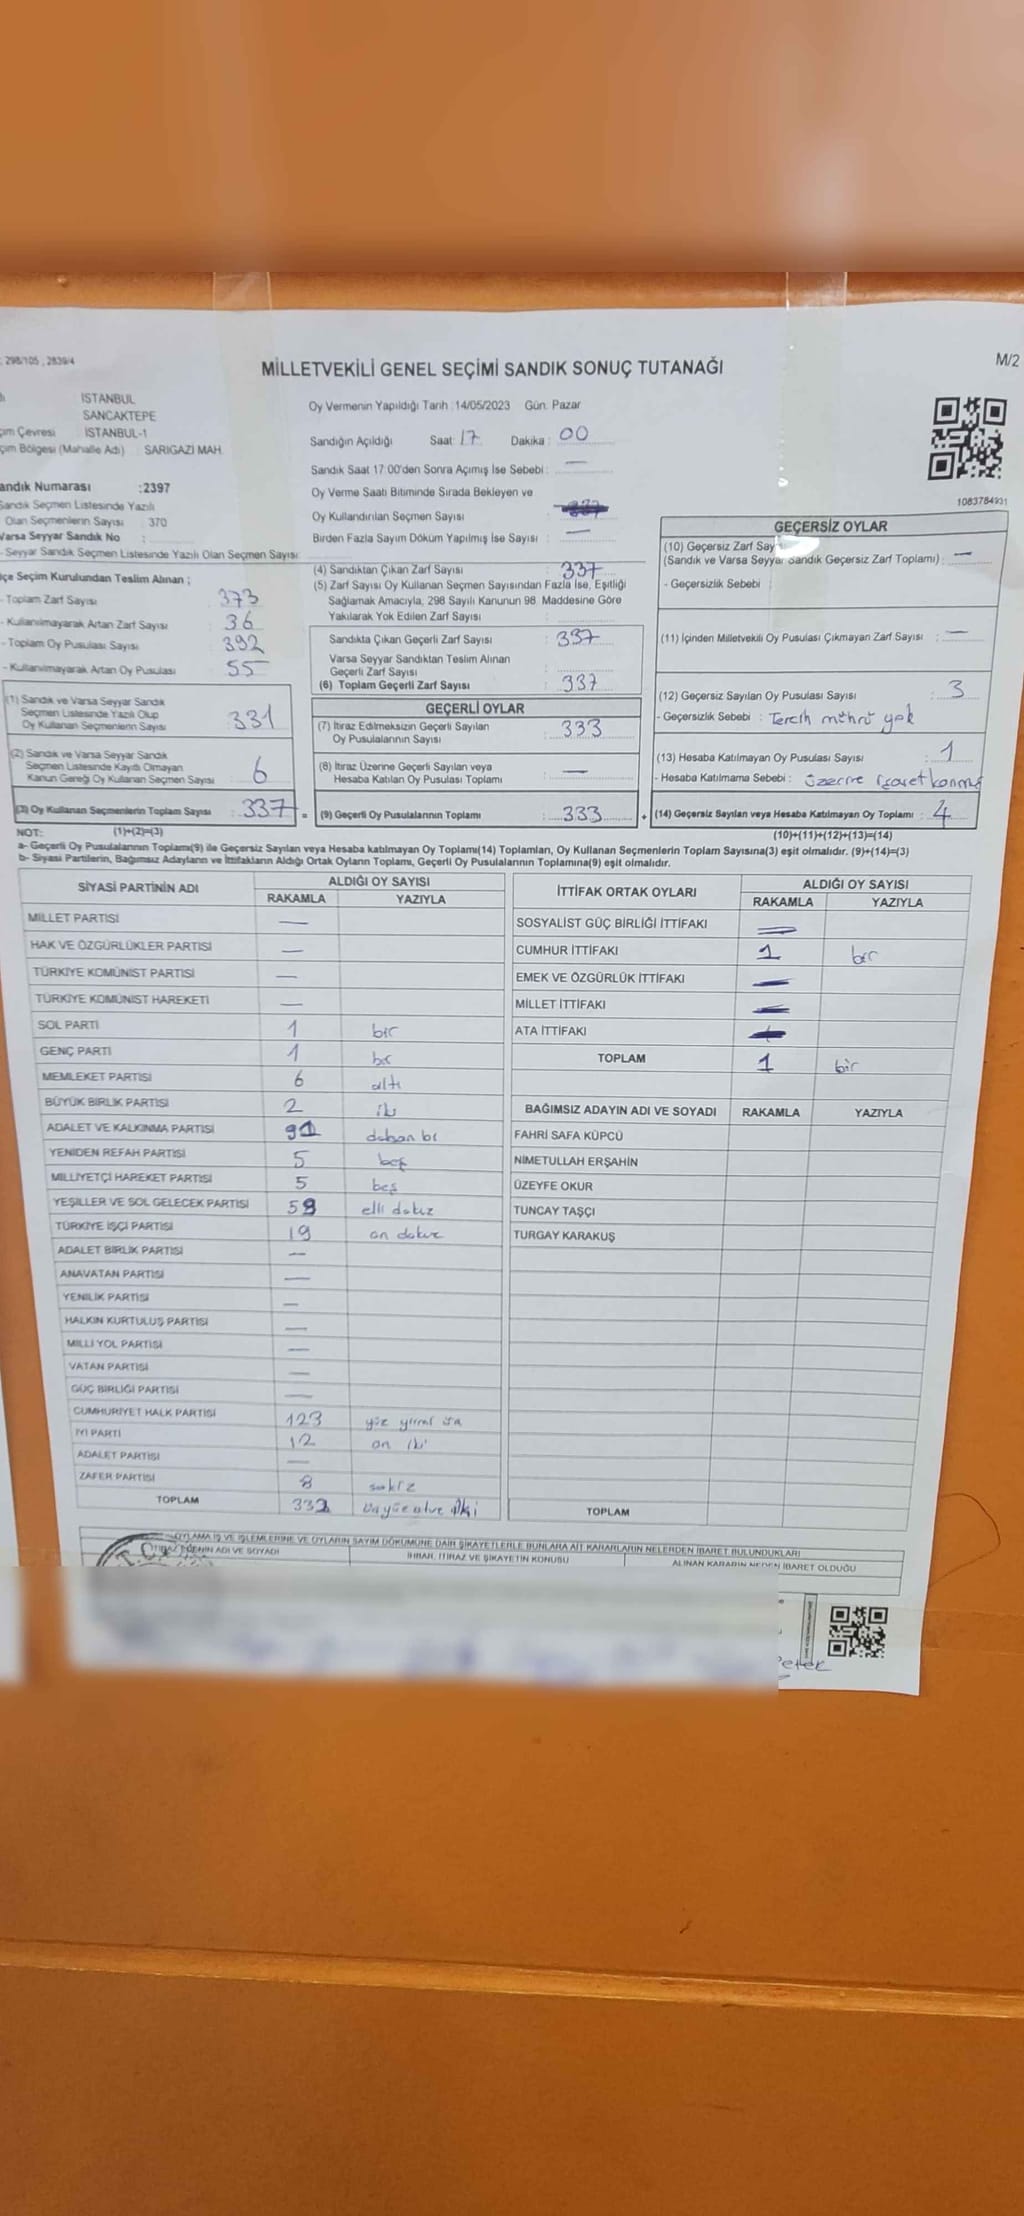 : 298/105 , 2839/4
M/2
MİLLETVEKİLİ GENEL SEÇİMİ SANDIK SONUÇ TUTANAĞI
İSTANBUL
SANCAKTEPE
çim Çevresi İSTANBUL-1
çim Bölgesi (Mahalle Adı) SARIGAZİ MAH.
andık Numarası :2397
Sandık Seçmen Listesinde Yazılı
Olan Seçmenlerin Sayısı : 370
Varsa Seyyar Sandık No :
- Seyyar Sandık Seçmen Listesinde Yazılı Olan Seçmen Sayısı:
çe Seçim Kurulundan Teslim Alınan ;
- Toplam Zarf Sayısı 373
- Kullanılmayarak Artan Zarf Sayısı : 36
- Toplam Oy Pusulası Sayısı 392
- Kullanılmayarak Artan Oy Pusulası 55
(1) Sandık ve Varsa Seyyar Sandık
Seçmen Listesinde Yazılı Olup
Oy Kullanan Seçmenlerin Sayısı : 331
(2) Sandık ve Varsa Seyyar Sandık
Seçmen Listesinde Kayıtlı Olmayan
Kanun Gereği Oy Kullanan Seçmen Sayısı : 6
(3) Oy Kullanan Seçmenlerin Toplam Sayısı : 337 =
NOT: (1)+(2)=(3)
Oy Vermenin Yapıldığı Tarih :14/05/2023 Gün: Pazar
Sandığın Açıldığı Saat: 17 Dakika : 00
Sandık Saat 17:00'den Sonra Açımış İse Sebebi : —
Oy Verme Saati Bitiminde Sırada Bekleyen ve
Oy Kullandırılan Seçmen Sayısı :
Birden Fazla Sayım Döküm Yapılmış İse Sayısı : —
(4) Sandıktan Çıkan Zarf Sayısı : 337
(5) Zarf Sayısı Oy Kullanan Seçmen Sayısından Fazla İse, Eşitliği
Sağlamak Amacıyla, 298 Sayılı Kanunun 98. Maddesine Göre
Yakılarak Yok Edilen Zarf Sayısı :
Sandıkta Çıkan Geçerli Zarf Sayısı : 337
Varsa Seyyar Sandıktan Teslim Alınan
Geçerli Zarf Sayısı :
(6) Toplam Geçerli Zarf Sayısı : 337
GEÇERLİ OYLAR
(7) İtiraz Edilmeksizin Geçerli Sayılan
Oy Pusulalarının Sayısı : 333
(8) İtiraz Üzerine Geçerli Sayılan veya
Hesaba Katılan Oy Pusulası Toplamı : —
(9) Geçerli Oy Pusulalarının Toplamı : 333 +
1083784931
GEÇERSİZ OYLAR
(10) Geçersiz Zarf Say
(Sandık ve Varsa Seyyar Sandık Geçersiz Zarf Toplamı) : —
- Geçersizlik Sebebi :
(11) İçinden Milletvekili Oy Pusulası Çıkmayan Zarf Sayısı : —
(12) Geçersiz Sayılan Oy Pusulası Sayısı : 3
- Geçersizlik Sebebi : Tercih mührü yok
(13) Hesaba Katılmayan Oy Pusulası Sayısı : 1
- Hesaba Katılmama Sebebi : üzerine işaret konmş
(14) Geçersiz Sayılan veya Hesaba Katılmayan Oy Toplamı : 4
(10)+(11)+(12)+(13)=(14)
a- Geçerli Oy Pusulalarının Toplamı(9) ile Geçersiz Sayılan veya Hesaba katılmayan Oy Toplamı(14) Toplamları, Oy Kullanan Seçmenlerin Toplam Sayısına(3) eşit olmalıdır. (9)+(14)=(3)
b- Siyasi Partilerin, Bağımsız Adayların ve İttifakların Aldığı Ortak Oyların Toplamı, Geçerli Oy Pusulalarının Toplamına(9) eşit olmalıdır.
SİYASİ PARTİNİN ADI ALDIĞI OY SAYISI
RAKAMLA YAZIYLA
MİLLET PARTİSİ —
HAK VE ÖZGÜRLÜKLER PARTİSİ —
TÜRKİYE KOMÜNİST PARTİSİ —
TÜRKİYE KOMÜNİST HAREKETİ —
SOL PARTİ 1 bir
GENÇ PARTİ 1 bir
MEMLEKET PARTİSİ 6 altı
BÜYÜK BİRLİK PARTİSİ 2 iki
ADALET VE KALKINMA PARTİSİ 91 doksan bi
YENİDEN REFAH PARTİSİ 5 beş
MİLLİYETÇİ HAREKET PARTİSİ 5 beş
YEŞİLLER VE SOL GELECEK PARTİSİ 59 elli dokuz
TÜRKİYE İŞÇİ PARTİSİ 19 on dokuz
ADALET BİRLİK PARTİSİ —
ANAVATAN PARTİSİ —
YENİLİK PARTİSİ —
HALKIN KURTULUŞ PARTİSİ —
MİLLİ YOL PARTİSİ —
VATAN PARTİSİ —
GÜÇ BİRLİĞİ PARTİSİ —
CUMHURİYET HALK PARTİSİ 123 yüz yirmi üç
İYİ PARTİ 12 on iki
ADALET PARTİSİ —
ZAFER PARTİSİ 8 sekiz
TOPLAM 332
İTTİFAK ORTAK OYLARI ALDIĞI OY SAYISI
RAKAMLA YAZIYLA
SOSYALİST GÜÇ BİRLİĞİ İTTİFAKI —
CUMHUR İTTİFAKI 1 bir
EMEK VE ÖZGÜRLÜK İTTİFAKI —
MİLLET İTTİFAKI —
ATA İTTİFAKI
TOPLAM 1 bir
BAĞIMSIZ ADAYIN ADI VE SOYADI RAKAMLA YAZIYLA
FAHRİ SAFA KÜPCÜ
NİMETULLAH ERŞAHİN
ÜZEYFE OKUR
TUNCAY TAŞÇI
TURGAY KARAKUŞ
TOPLAM
OYLAMA İŞ VE İŞLEMLERİNE VE OYLARIN SAYIM DÖKÜMÜNE DAİR ŞİKAYETLERLE BUNLARA AİT KARARLARIN NELERDEN İBARET BULUNDUKLARI
İTİRAZ EDENİN ADI VE SOYADI İHBAR, İTİRAZ VE ŞİKAYETİN KONUSU ALINAN KARARIN NEDEN İBARET OLDUĞU
T.C.